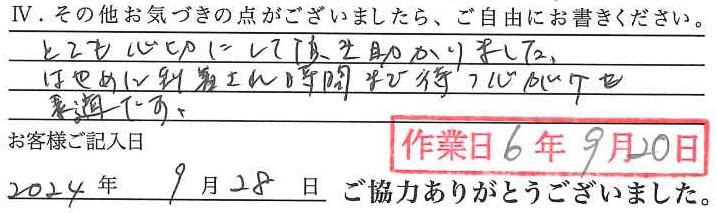 Ⅳ．その他お気づきの点がございましたら、ご自由にお書きください。
とても心切にして頂き助かりました。
はやめに到着され時間まで待つ心がけも
最適です。
お客様ご記入日
作業日 6年 9月20日
2024 年 9 月 28 日 ご協力ありがとうございました。